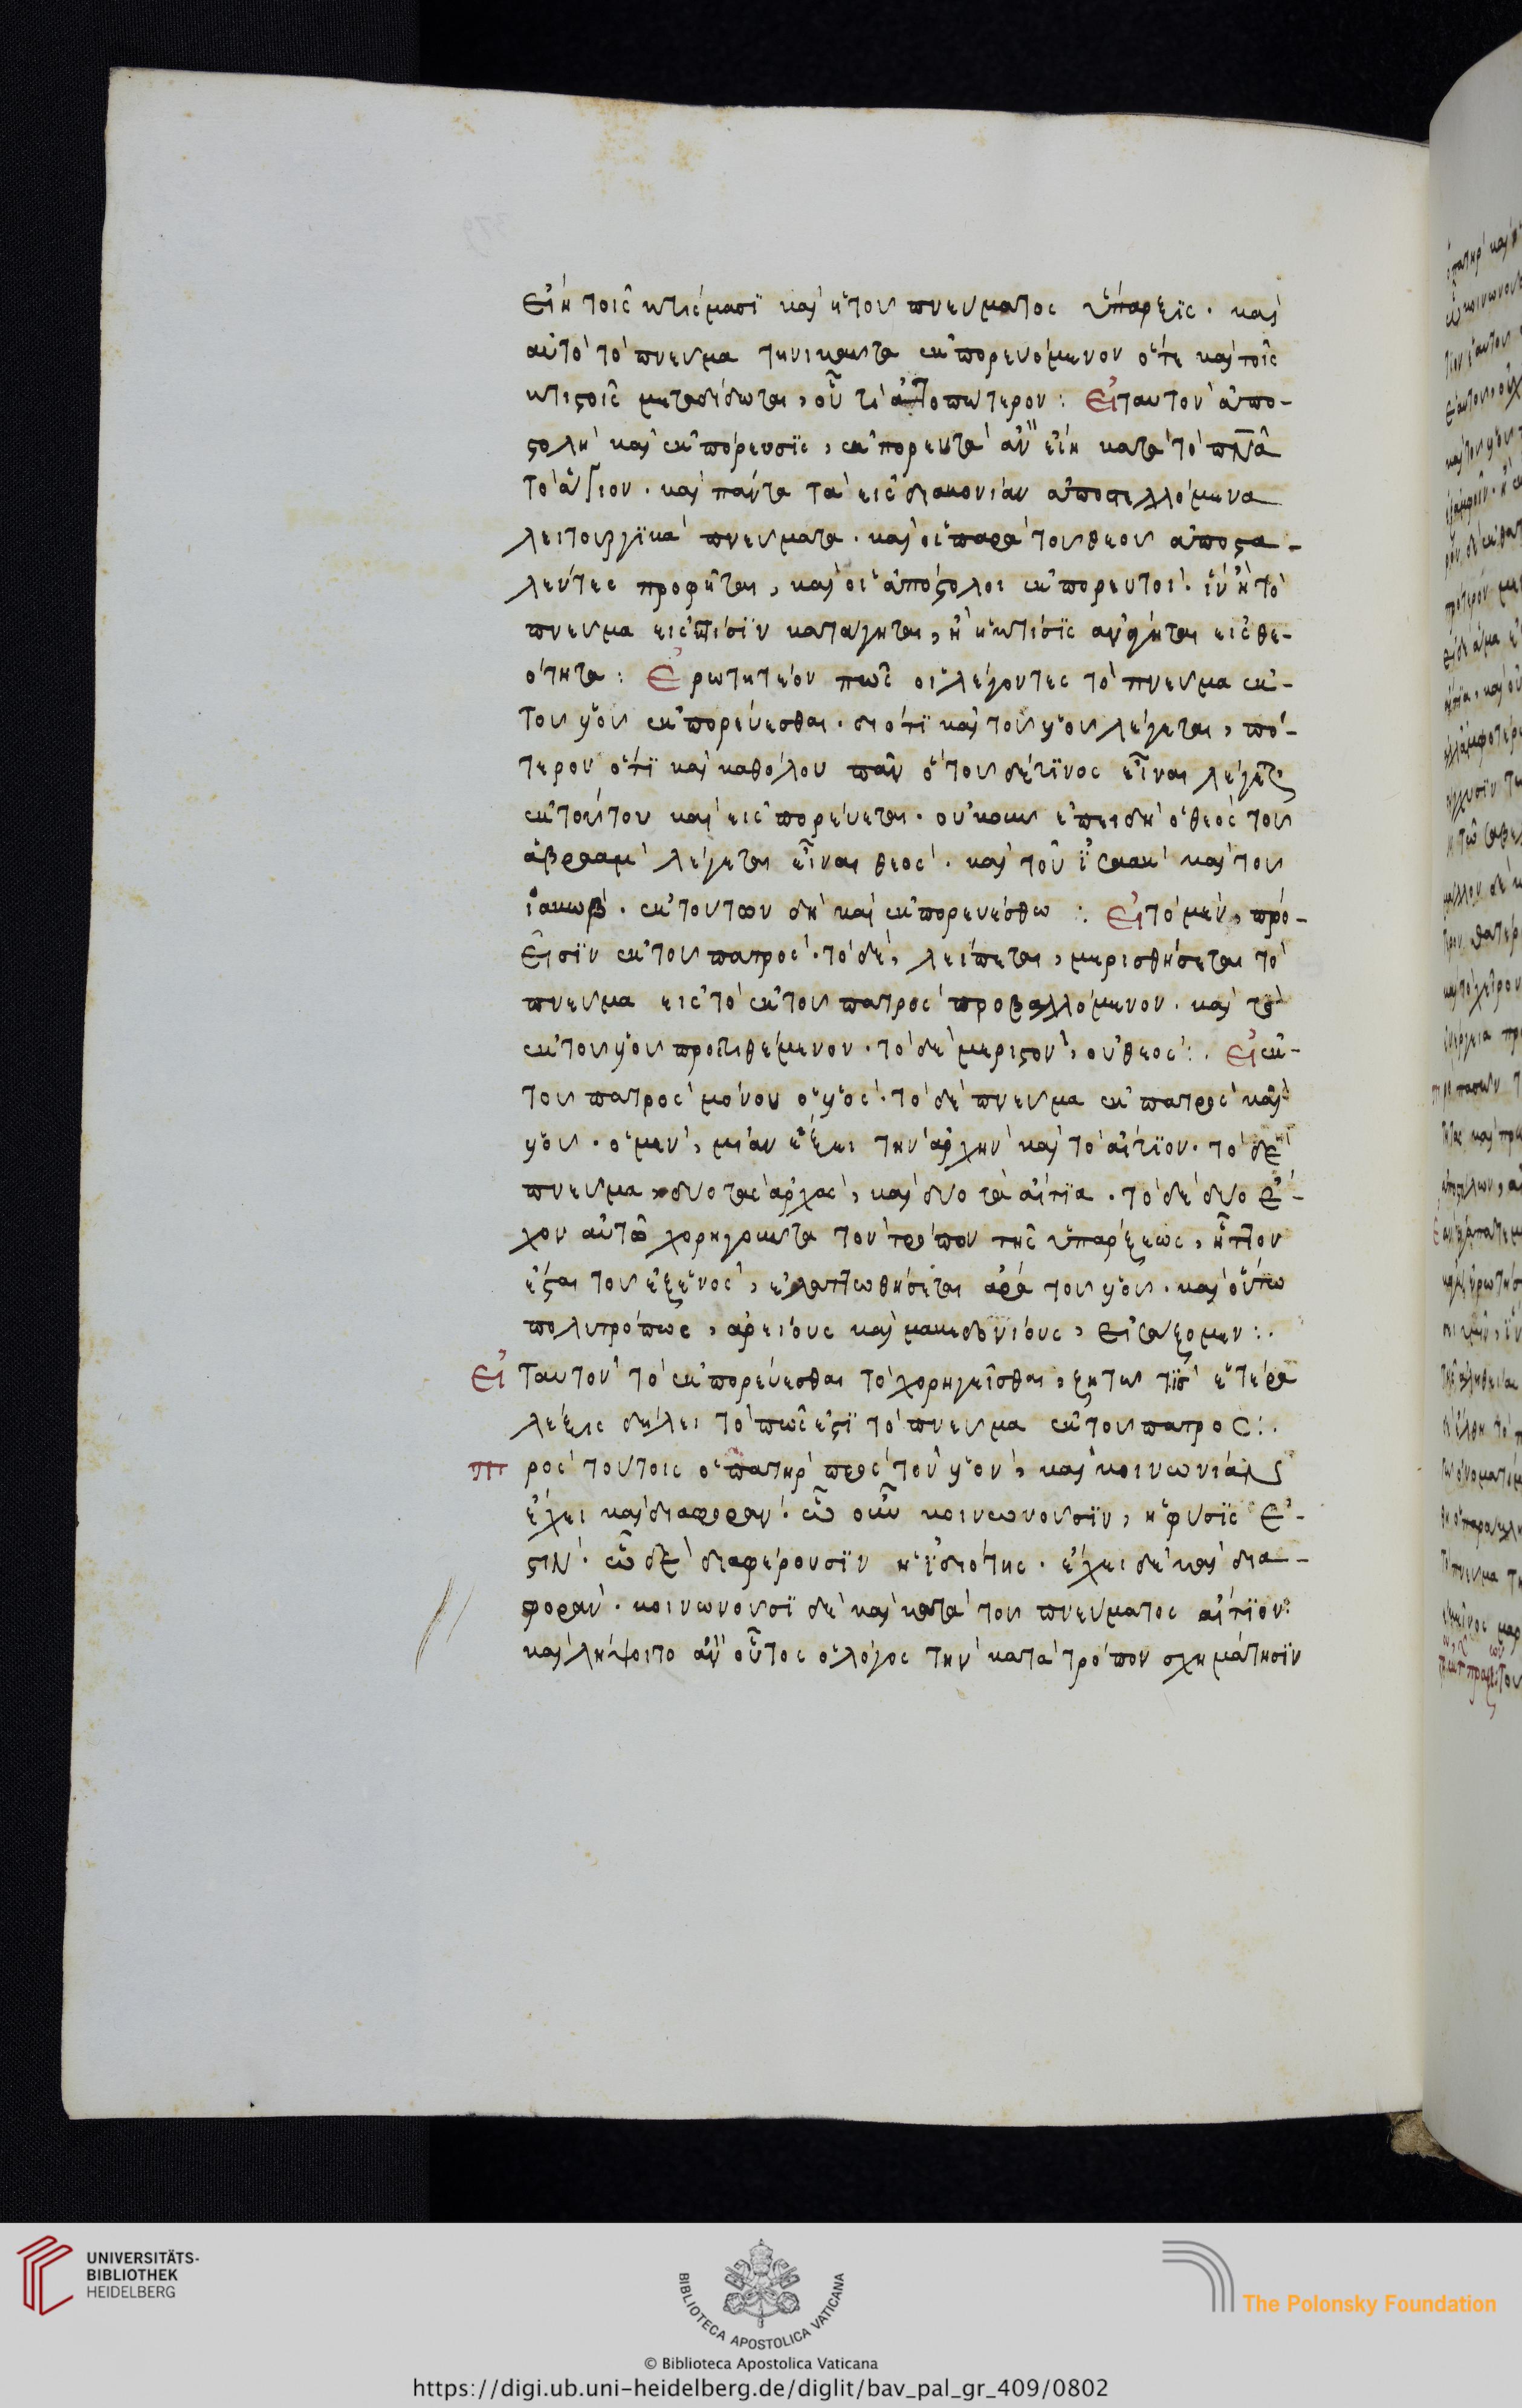 εἴη τοῖς κτίσμασϊ καὶ ἡ τοῦ πνεύματος ὕπαρξις. καὶ
αὐτὸ τὸ πνεῦμα τηνικαῦτα ἐκπορευόμενον ὅτε καὶ τοῖς
κτιστοῖς μεταδίδωται, οὗ τί ἀτοπώτερον: Εἰ ταυτὸν ἀπο-
στολὴ καὶ ἐκπόρευσϊς, ἐκπορευτὰ ἂν εἴη κατὰ τὸ πν̅α
τὸ ἅγιον. καὶ πάντα τὰ εἰς διακονίαν ἀποστελλόμενα
λειτουργϊκὰ πνεύματα. καὶ οἱ παρὰ τοῦ θεοῦ ἀποστα-
λέντες προφῆται, καὶ οἱ ἀπόστολοι ἐκπορευτοί. ἵν ἢ τὸ
πνεῦμα εἰς κτίσϊν κατάγηται, ἢ ἡ κτίσϊς ἀνάγηται εἰς θε-
ότητα: Ἐρωτητέον πῶς οἱ λέγοντες τὸ πνεῦμα ἐκ-
τοῦ υἱοῦ ἐκπορεύεσθαι. διότϊ καὶ τοῦ υἱοῦ λέγεται, πό-
τερον ὅτϊ καὶ καθόλου πᾶν ὅ τοῦ δέ τϊνος εἶναι λέγετ
ἐκ τούτου καὶ ἐκπορεύεται. οὐκοῦν ἐπειδὴ ὁ θεὸς τοῦ
ἀβραὰμ λέγεται εἶναι θεός. καὶ τοῦ ἰσαὰκ καὶ τοῦ
ἰακώβ. ἐκ τούτων δὴ καὶ ἐκπορευέσθω: Εἰ τὸ μέν, πρό-
εισϊν ἐκ τοῦ πατρός. τὸ δέ, λείπεται, μερισθήσεται τὸ
πνεῦμα εἰς τὸ ἐκ τοῦ πατρὸς προβαλλόμενον. καὶ τὸ
ἐκ τοῦ υἱοῦ προστιθέμενον. τὸ δὲ μεριστόν, οὐ θεός:. Εἰ ἐκ-
τοῦ πατρὸς μόνου ὁ υἱός. τὸ δὲ πνεῦμα ἐκ πατρὸς καὶ
υἱοῦ. ὁ μέν, μίαν ἕξει τὴν ἀρχὴν καὶ τὸ αἴτϊον. τὸ δὲ
πνεῦμα, δύο τὰς ἀρχάς, καὶ δύο τὰ αἴτϊα. τὸ δὲ δύο ἔ-
χον αὐτῷ χορηγοῦντα τὸν τρόπον τῆς ὑπάρξεως, ἧττον
ἔσται τοῦ ἐξ ἑνός, ἐλαττωθήσεται ἄρα τοῦ υἱοῦ. καὶ οὕτω
πολυτρόπως, ἀρείους καὶ μακεδονίους, εἰσάξομεν:.
Εἰ ταυτὸν τὸ ἐκπορεύεσθαι τὸ χορηγεῖσθαι, ζητῶ τίσ ἑτέρα
λέξις δηλεῖ τὸ πῶς ἐστϊ τὸ πνεῦμα ἐκ τοῦ πατρός:.
Πρὸς τούτοις ὁ πατὴρ πρὸς τὸν υἱόν, καὶ κοινωνίαν
ἔχει καὶ διαφοράν. ὧ οὖν κοινωνοῦσϊν, ἡ φύσϊς ἐ-
στιν. ὧ δὲ διαφέρουσϊν ἡ ἰδιότης. ἔχει δὲ καὶ δια-
φοράν. κοινωνοῦσϊ δὲ καὶ κατὰ τοῦ πνεύματος αἴτϊον:
καὶ λήψοιτο ἂν οὗτος ὁ λόγος τὴν κατὰ τρόπον σχημάτησϊν
UNIVERSITÄTS-
BIBLIOTHEK
HEIDELBERG
BIBLIOTECA APOSTOLICA VATICANA
The Polonsky Foundation
© Biblioteca Apostolica Vaticana
https://digi.ub.uni-heidelberg.de/diglit/bav_pal_gr_409/0802